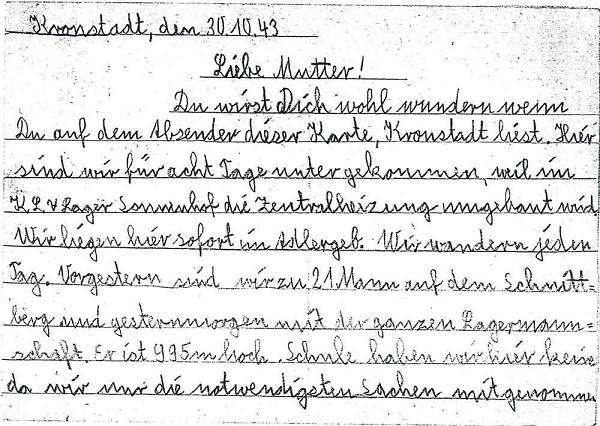 Kronstadt, den 30.10.43
Liebe Mutter!
Du wirst Dich wohl wundern wenn
Du auf dem Absender dieser Karte, Kronstadt liest. Hier
sind wir für acht Tage untergekommen, weil im
K.L.V Lager Sonnenhof die Zentralheizung umgebaut wird.
Wir liegen hier sofort im Adlergeb. Wir wandern jeden
Tag. Vorgestern sind wir zu 21 Mann auf dem Schnitt=
berg und gesternmorgen mit der ganzen Lagermann=
schaft. Er ist 995m hoch. Schule haben wir hier keine
da wir nur die notwendigsten Sachen mitgenommen